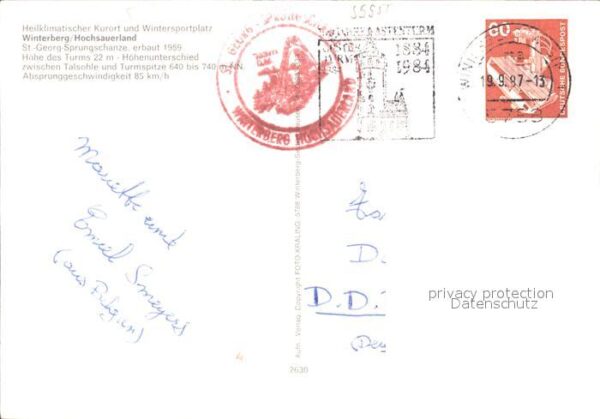 Heilklimatischer Kurort und Wintersportplatz
Winterberg/Hochsauerland
St.-Georg-Sprungschanze, erbaut 1959
Höhe des Turms 22 m - Höhenunterschied
zwischen Talsohle und Turmspitze 640 bis 740 m NN.
Absprunggeschwindigkeit 85 km/h
55551
WINTERBERG HOCHSAUERLAND
ASTENTURM
1884
1984
19.9.87-13
60
DEUTSCHE BUNDESPOST
Mariette und
Emiel Smeyers
(aus Belgien)
Aufn. Verlag Copyright FOTO KRALING, 5788 Winterberg
D.
D.D.
privacy protection
Datenschutz
2630